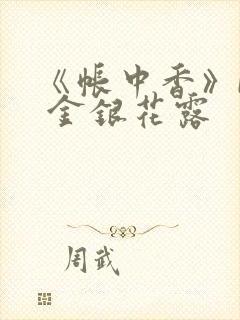 《帐中香》
金银花露
周武